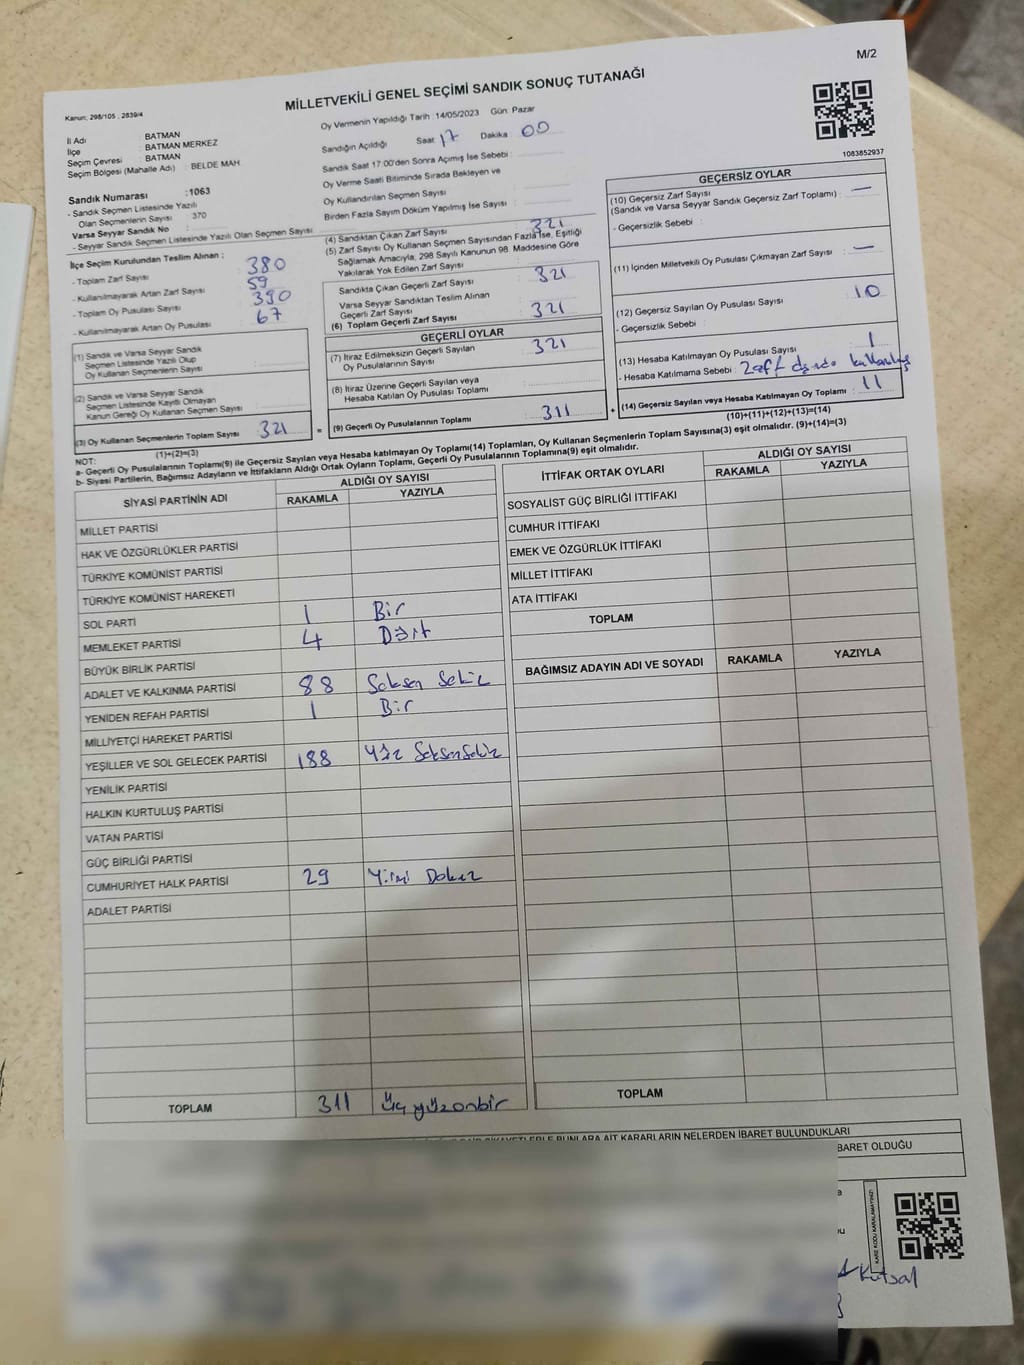 M/2
MİLLETVEKİLİ GENEL SEÇİMİ SANDIK SONUÇ TUTANAĞI
Kanun: 298/105 , 2839/4
1083852937
İl Adı BATMAN
İlçe BATMAN MERKEZ
Seçim Çevresi BATMAN
Seçim Bölgesi (Mahalle Adı) : BELDE MAH
Sandık Numarası : 1063
- Sandık Seçmen Listesinde Yazılı
Olan Seçmenlerin Sayısı : 370
Varsa Seyyar Sandık No :
- Seyyar Sandık Seçmen Listesinde Yazılı Olan Seçmen Sayısı :
İlçe Seçim Kurulundan Teslim Alınan ;
- Toplam Zarf Sayısı : 380
- Kullanılmayarak Artan Zarf Sayısı : 59
- Toplam Oy Pusulası Sayısı : 390
- Kullanılmayarak Artan Oy Pusulası : 67
(1) Sandık ve Varsa Seyyar Sandık
Seçmen Listesinde Yazılı Olup
Oy Kullanan Seçmenlerin Sayısı :
(2) Sandık ve Varsa Seyyar Sandık
Seçmen Listesinde Kayıtlı Olmayan
Kanun Gereği Oy Kullanan Seçmen Sayısı :
(3) Oy Kullanan Seçmenlerin Toplam Sayısı : 321
(1)+(2)=(3)
Oy Vermenin Yapıldığı Tarih : 14/05/2023 Gün: Pazar
Sandığın Açıldığı Saat 17 Dakika 00
Sandık Saat 17:00'den Sonra Açımış İse Sebebi :
Oy Verme Saati Bitiminde Sırada Bekleyen ve
Oy Kullandırılan Seçmen Sayısı :
Birden Fazla Sayım Döküm Yapılmış İse Sayısı :
(4) Sandıktan Çıkan Zarf Sayısı : 321
(5) Zarf Sayısı Oy Kullanan Seçmen Sayısından Fazla İse, Eşitliği
Sağlamak Amacıyla, 298 Sayılı Kanunun 98. Maddesine Göre
Yakılarak Yok Edilen Zarf Sayısı :
Sandıkta Çıkan Geçerli Zarf Sayısı : 321
Varsa Seyyar Sandıktan Teslim Alınan
Geçerli Zarf Sayısı :
(6) Toplam Geçerli Zarf Sayısı : 321
GEÇERLİ OYLAR
(7) İtiraz Edilmeksizin Geçerli Sayılan
Oy Pusulalarının Sayısı : 321
(8) İtiraz Üzerine Geçerli Sayılan veya
Hesaba Katılan Oy Pusulası Toplamı :
= (9) Geçerli Oy Pusulalarının Toplamı : 311 +
GEÇERSİZ OYLAR
(10) Geçersiz Zarf Sayısı
(Sandık ve Varsa Seyyar Sandık Geçersiz Zarf Toplamı) : —
- Geçersizlik Sebebi :
(11) İçinden Milletvekili Oy Pusulası Çıkmayan Zarf Sayısı : —
(12) Geçersiz Sayılan Oy Pusulası Sayısı : 10
- Geçersizlik Sebebi :
(13) Hesaba Katılmayan Oy Pusulası Sayısı : 1
- Hesaba Katılmama Sebebi :
(14) Geçersiz Sayılan veya Hesaba Katılmayan Oy Toplamı : 11
(10)+(11)+(12)+(13)=(14)
NOT:
a- Geçerli Oy Pusulalarının Toplamı(9) ile Geçersiz Sayılan veya Hesaba katılmayan Oy Toplamı(14) Toplamları, Oy Kullanan Seçmenlerin Toplam Sayısına(3) eşit olmalıdır. (9)+(14)=(3)
b- Siyasi Partilerin, Bağımsız Adayların ve İttifakların Aldığı Ortak Oyların Toplamı, Geçerli Oy Pusulalarının Toplamına(9) eşit olmalıdır.
SİYASİ PARTİNİN ADI ALDIĞI OY SAYISI
RAKAMLA YAZIYLA
MİLLET PARTİSİ
HAK VE ÖZGÜRLÜKLER PARTİSİ
TÜRKİYE KOMÜNİST PARTİSİ
TÜRKİYE KOMÜNİST HAREKETİ
SOL PARTİ 1 Bir
MEMLEKET PARTİSİ 4 Dört
BÜYÜK BİRLİK PARTİSİ
ADALET VE KALKINMA PARTİSİ 88 Seksen Sekiz
YENİDEN REFAH PARTİSİ 1 Bir
MİLLİYETÇİ HAREKET PARTİSİ
YEŞİLLER VE SOL GELECEK PARTİSİ 188 Yüz Seksen Sekiz
YENİLİK PARTİSİ
HALKIN KURTULUŞ PARTİSİ
VATAN PARTİSİ
GÜÇ BİRLİĞİ PARTİSİ
CUMHURİYET HALK PARTİSİ 29 Yirmi Dokuz
ADALET PARTİSİ
TOPLAM 311 Üç yüz onbir
İTTİFAK ORTAK OYLARI ALDIĞI OY SAYISI
RAKAMLA YAZIYLA
SOSYALİST GÜÇ BİRLİĞİ İTTİFAKI
CUMHUR İTTİFAKI
EMEK VE ÖZGÜRLÜK İTTİFAKI
MİLLET İTTİFAKI
ATA İTTİFAKI
TOPLAM
BAĞIMSIZ ADAYIN ADI VE SOYADI RAKAMLA YAZIYLA
TOPLAM
BUNLARA AİT KARARLARIN NELERDEN İBARET BULUNDUKLARI
BARET OLDUĞU
KARE KODU KARALAMAYINIZ!
Kutsal